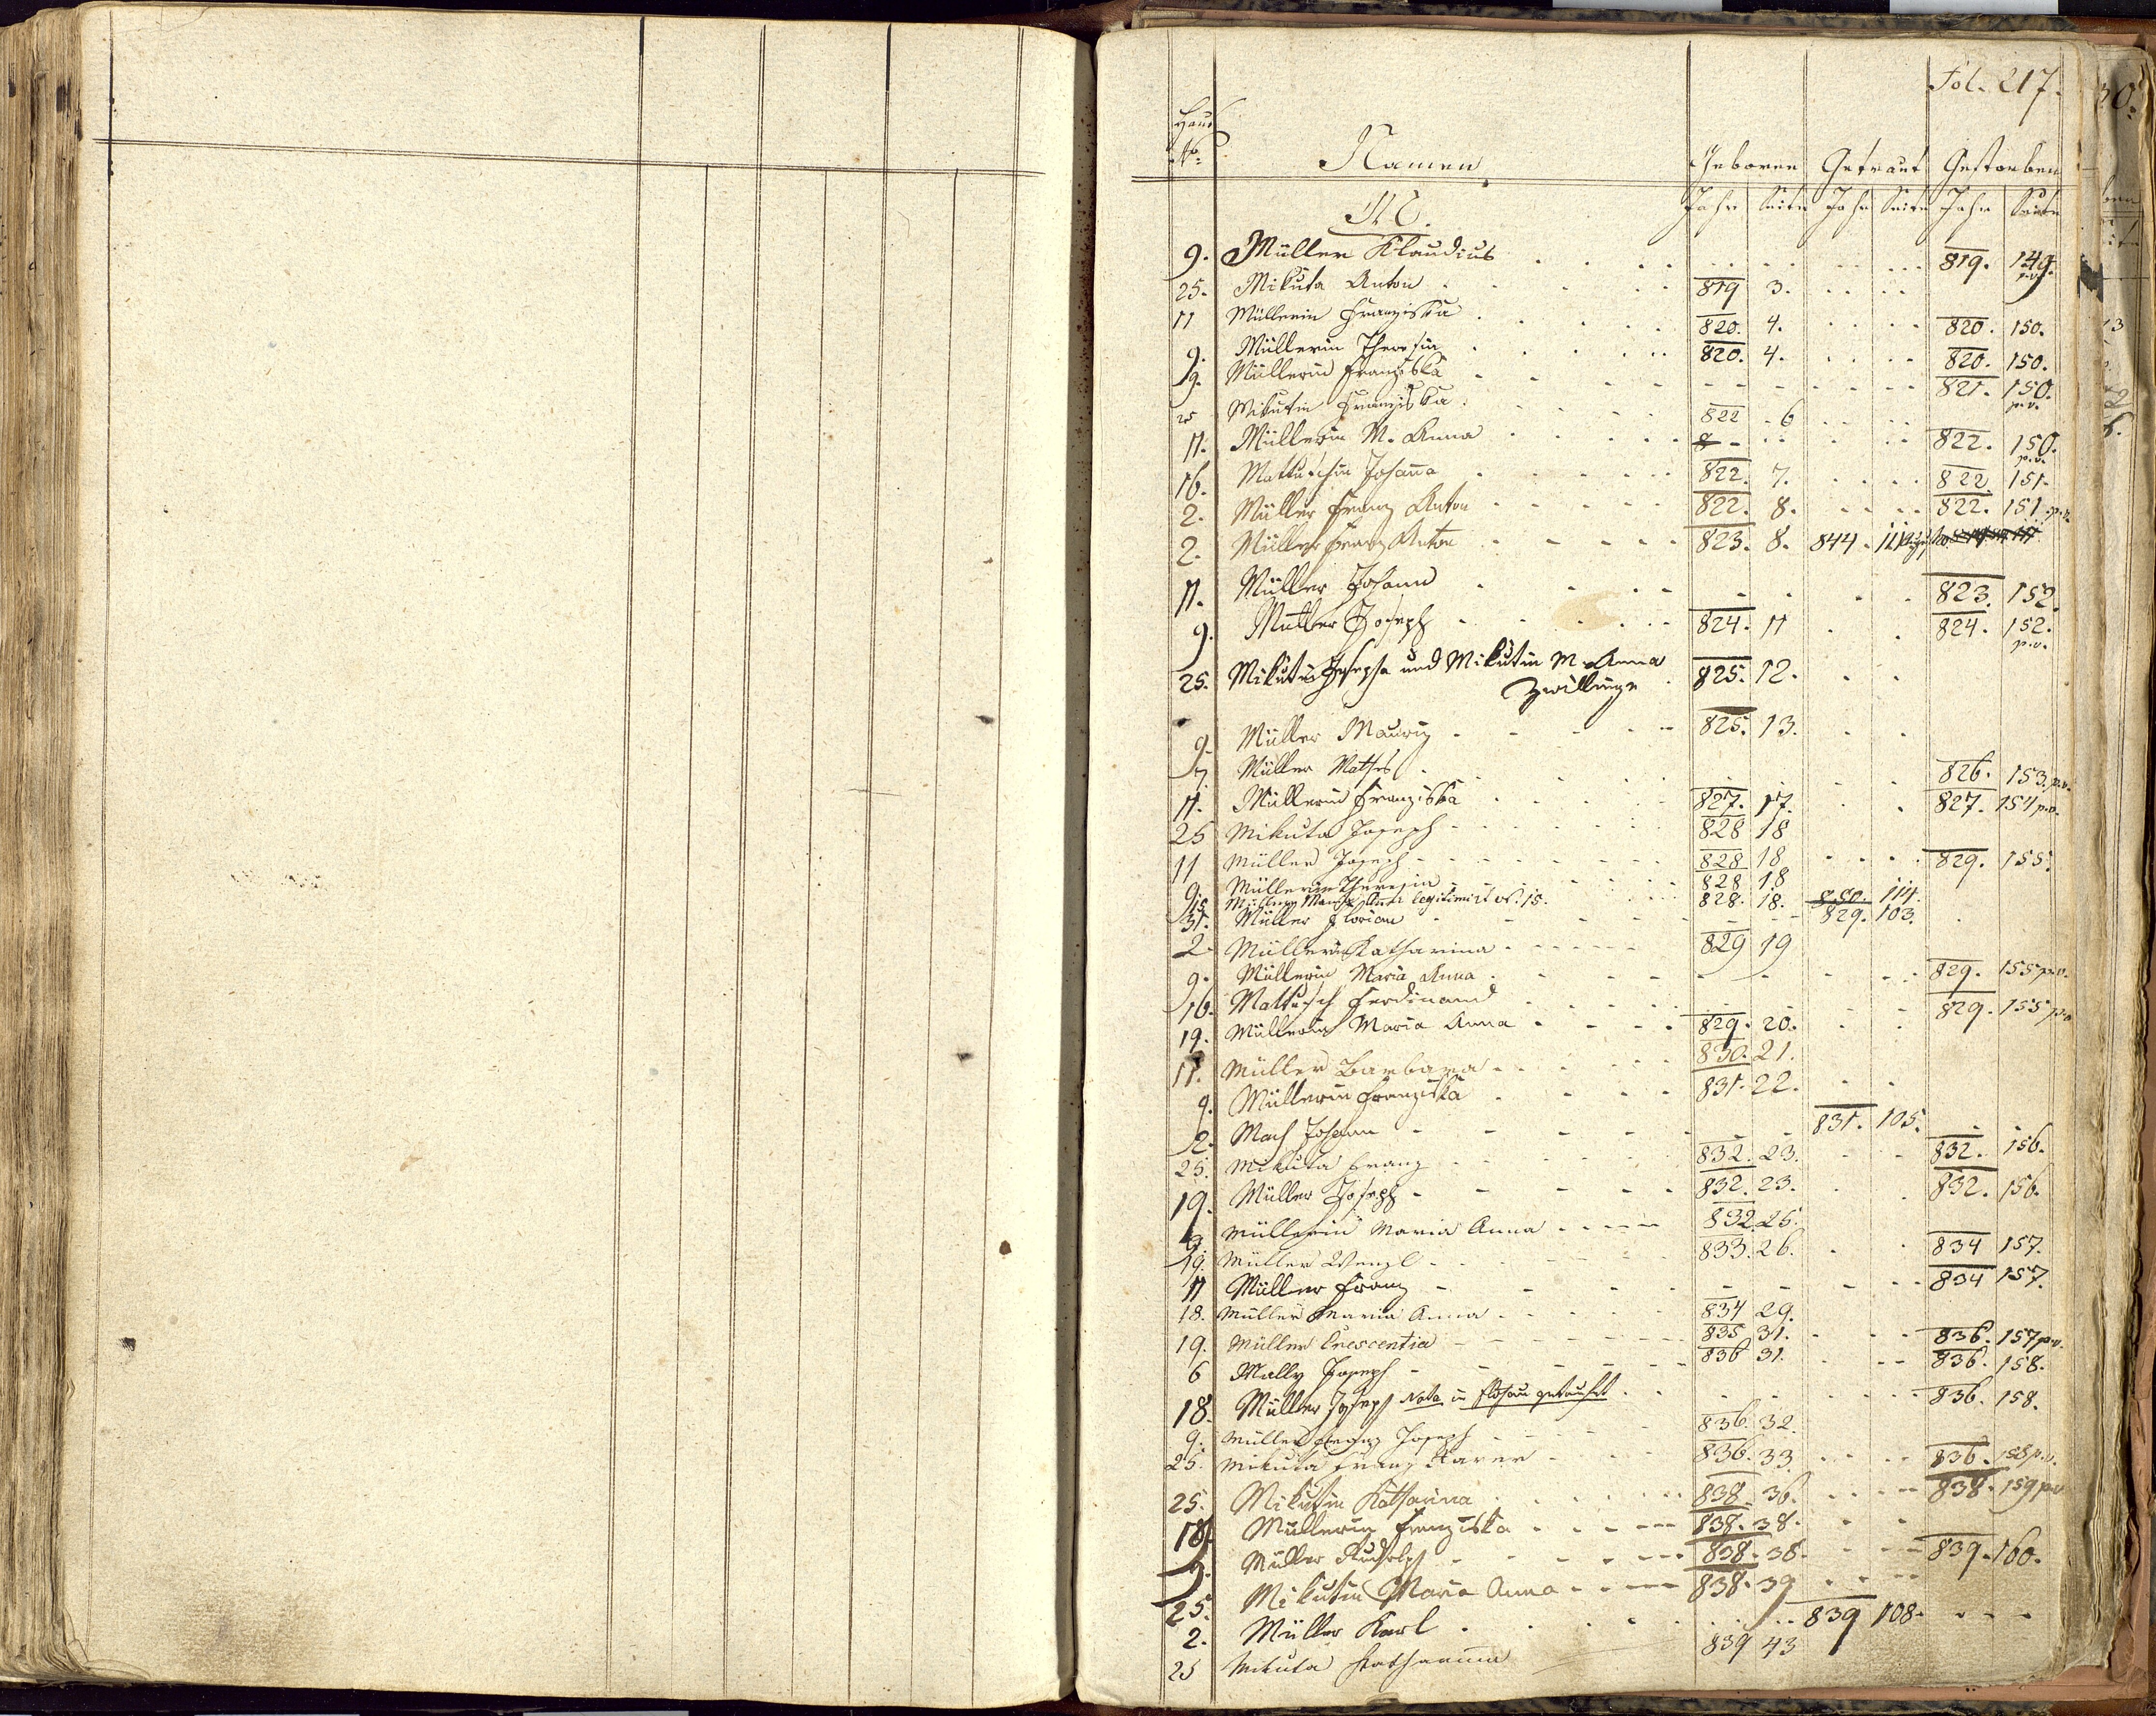 Fol. 217.
Haus
No. Namen Geboren Getraut Gestorben
M. Jahr Seite Jahr Seite Jahr Seite
9. Müller Klaudius 819. 149. p.v.
25. Mikuta Anton 819 3.
11 Müllerin Franziska 820. 4. 820. 150.
9. Müllerin Theresia 820. 4. 820. 150.
9. Müllerin Franziska 821. 150. p.v.
25 Mikutin Franziska 822 6
11. Müllerin M. Anna 822. 150. p.v.
16. Mattuschin Johanna 822. 7. 822. 151.
2. Müller Franz Anton 822. 8. 822. 151. p.v.
2. Müller Franz Anton 823. 8. 844. 111
11. Müller Johann 823. 152.
9. Müller Joseph 824. 11 824. 152. p.v.
25. Mikutin Josepha und Mikutin M. Anna 825. 12.
Zwillinge
9. Müller Mauriz 825. 13.
7. Müller Mathes 826. 153. p.v.
11. Müllerin Franziska 827. 17. 827. 154 p.v.
25 Mikuta Joseph 828 18
11 Müller Joseph 828 18 829. 155.
9 Müllerin Theresia 828 18
15 Müllerin Maria Anna legitimirt 15. 828. 18. 850. 114.
31. Müller Florian 829. 103.
2 Müllerin Katharina 829 19
9. Müllerin Maria Anna 829. 155 p.v.
16. Mattusch Ferdinand 829. 155 p.v.
19. Müllerin Maria Anna 829. 20.
11. Müller Barbara 830. 21.
9. Müllerin Franziska 831. 22.
2. Mach Johann 831. 105.
25. Mikuta Franz 832. 23. 832. 156.
19. Müller Joseph 832. 23. 832. 156.
9 Müllerin Maria Anna 832. 25.
19. Müller Wenzl 833. 26. 834 157.
11 Müller Franz 834 157.
18. Müller Maria Anna 834 29.
19. Müller Crescentia 835 31. 836. 157 p.v.
6 Mally Joseph 836 31. 836. 158.
18. Müller Joseph Nota in Flöhau getauft 836. 158.
9. Müller Franz Joseph 836. 32.
25. Mikuta Franz Xaver 836. 33 836. 158 p.v.
25. Mikutin Katharina 838. 36. 838. 159 p.v.
18. Müllerin Franziska 838. 38.
9. Müller Rudolph 838. 38. 839. 160.
25. Mikutin Maria Anna 838. 39
2. Müller Karl 839 108.
25 Mikuta Katharina 839 43